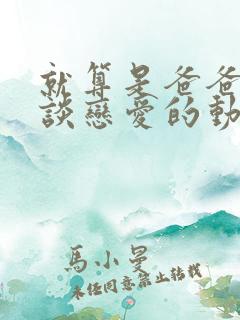 就算是爸爸
談戀愛的動
馬小曼
未經同意禁止轉載